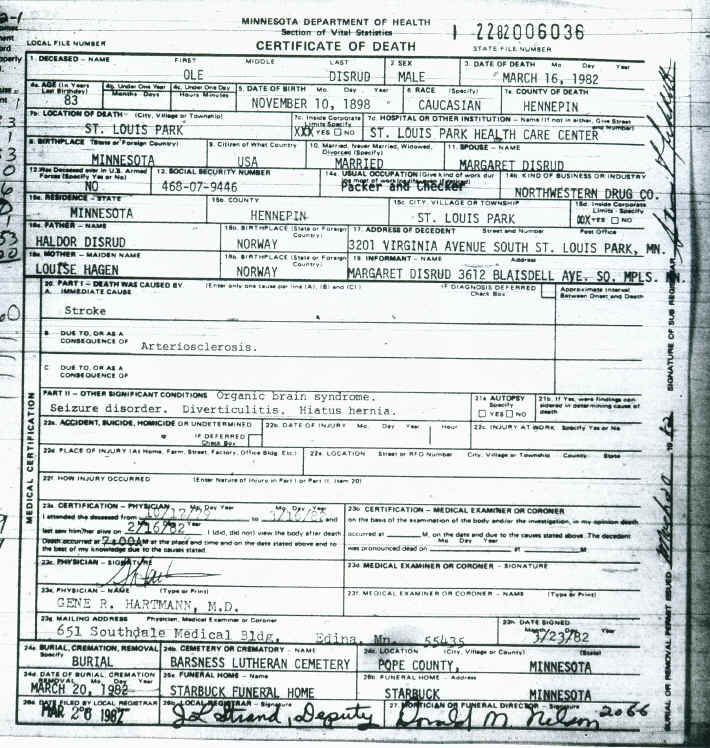 MINNESOTA DEPARTMENT OF HEALTH
Section of Vital Statistics
CERTIFICATE OF DEATH
2282006036
LOCAL FILE NUMBER
STATE FILE NUMBER
1. DECEASED – NAME FIRST MIDDLE LAST 2. SEX 3. DATE OF DEATH Mo. Day Year
OLE DISRUD MALE MARCH 16, 1982
4a. AGE (In Years Last Birthday) 4b. Under One Year Months Days 4c. Under One Day Hours Minutes 5. DATE OF BIRTH Mo. Day Year 6. RACE (Specify) 7a. COUNTY OF DEATH
83 NOVEMBER 10, 1898 CAUCASIAN HENNEPIN
7b. LOCATION OF DEATH (City, Village or Township) 7c. Inside Corporate Limits Specify 7d. HOSPITAL OR OTHER INSTITUTION – Name (If not in either, Give Street and Number)
ST. LOUIS PARK XXX YES NO ST. LOUIS PARK HEALTH CARE CENTER
8. BIRTHPLACE (State or Foreign Country) 9. Citizen of What Country 10. Married, Never Married, Widowed, Divorced (Specify) 11. SPOUSE – NAME
MINNESOTA USA MARRIED MARGARET DISRUD
12. Was Deceased ever in U.S. Armed Forces (Specify Yes or No) 13. SOCIAL SECURITY NUMBER 14a. USUAL OCCUPATION (Give kind of work during most of working life, even if retired) 14b. KIND OF BUSINESS OR INDUSTRY
NO 468-07-9446 Packer and Checker NORTHWESTERN DRUG CO.
15a. RESIDENCE – STATE 15b. COUNTY 15c. CITY, VILLAGE OR TOWNSHIP 15d. Inside Corporate Limits - Specify
MINNESOTA HENNEPIN ST. LOUIS PARK XX YES NO
16a. FATHER – NAME 16b. BIRTHPLACE (State or Foreign Country) 17. ADDRESS OF DECEDENT Street and Number Post Office
HALDOR DISRUD NORWAY 3201 VIRGINIA AVENUE SOUTH ST. LOUIS PARK, MN.
18a. MOTHER – MAIDEN NAME 18b. BIRTHPLACE (State or Foreign Country) 19. INFORMANT – NAME Address
LOUISE HAGEN NORWAY MARGARET DISRUD 3612 BLAISDELL AVE. SO. MPLS.
20. PART I – DEATH WAS CAUSED BY (Enter only one cause per line (A), (B) and (C)) IF DIAGNOSIS DEFERRED Check Box Approximate Interval Between Onset and Death
A. IMMEDIATE CAUSE
Stroke
B. DUE TO, OR AS A CONSEQUENCE OF
Arteriosclerosis.
C. DUE TO, OR AS A CONSEQUENCE OF
PART II – OTHER SIGNIFICANT CONDITIONS Organic brain syndrome.
Seizure disorder. Diverticulitis. Hiatus hernia.
21a. AUTOPSY Specify YES NO 21b. If Yes, were findings considered in determining cause of death
22a. ACCIDENT, SUICIDE, HOMICIDE OR UNDETERMINED 22b. DATE OF INJURY Mo. Day Year Hour 22c. INJURY AT WORK Specify Yes or No
IF DEFERRED Check Box
22d. PLACE OF INJURY (At Home, Farm, Street, Factory, Office Bldg. Etc.) 22e. LOCATION Street or RFD Number City, Village or Township County State
22f. HOW INJURY OCCURRED (Enter Nature of Injury in Part I or Part II, Item 20)
MEDICAL CERTIFICATION
23a. CERTIFICATION – PHYSICIAN Mo. Day Year Mo. Day Year
I attended the deceased from to and
last saw him/her alive on 2/16/82 I (did, did not) view the body after death
Death occurred at 2:00AM at the place and time and on the date stated above and to the best of my knowledge due to the causes stated.
23b. CERTIFICATION – MEDICAL EXAMINER OR CORONER
on the basis of the examination of the body and/or the investigation, in my opinion death
occurred at M, on the date and due to the causes stated above. The decedent
Mo Day Year
was pronounced dead on at M.
23c. PHYSICIAN – SIGNATURE 23d. MEDICAL EXAMINER OR CORONER – SIGNATURE
23e. PHYSICIAN – NAME (Type or Print) 23f. MEDICAL EXAMINER OR CORONER – NAME (Type or Print)
GENE R. HARTMANN, M.D.
23g. MAILING ADDRESS Physician, Medical Examiner or Coroner 23h. DATE SIGNED Month Day Year
651 Southdale Medical Bldg. Edina, Mn. 55435 3/23/82
24a. BURIAL, CREMATION, REMOVAL Specify 24b. CEMETERY OR CREMATORY – NAME 24c. LOCATION (City, Village or County) (State)
BURIAL BARSNESS LUTHERAN CEMETERY POPE COUNTY, MINNESOTA
24d. DATE OF BURIAL, CREMATION REMOVAL Mo. Day Year 25a. FUNERAL HOME – Name 25b. FUNERAL HOME – Address
MARCH 20, 1982 STARBUCK FUNERAL HOME STARBUCK MINNESOTA
26a. DATE FILED BY LOCAL REGISTRAR 26b. LOCAL REGISTRAR – Signature 27. MORTICIAN OR FUNERAL DIRECTOR – Signature
MAR 26 1982 J L Strand, Deputy Donald M Nelson 2066
SIGNATURE OF SUB REGISTRAR
BURIAL OR REMOVAL PERMIT ISSUED